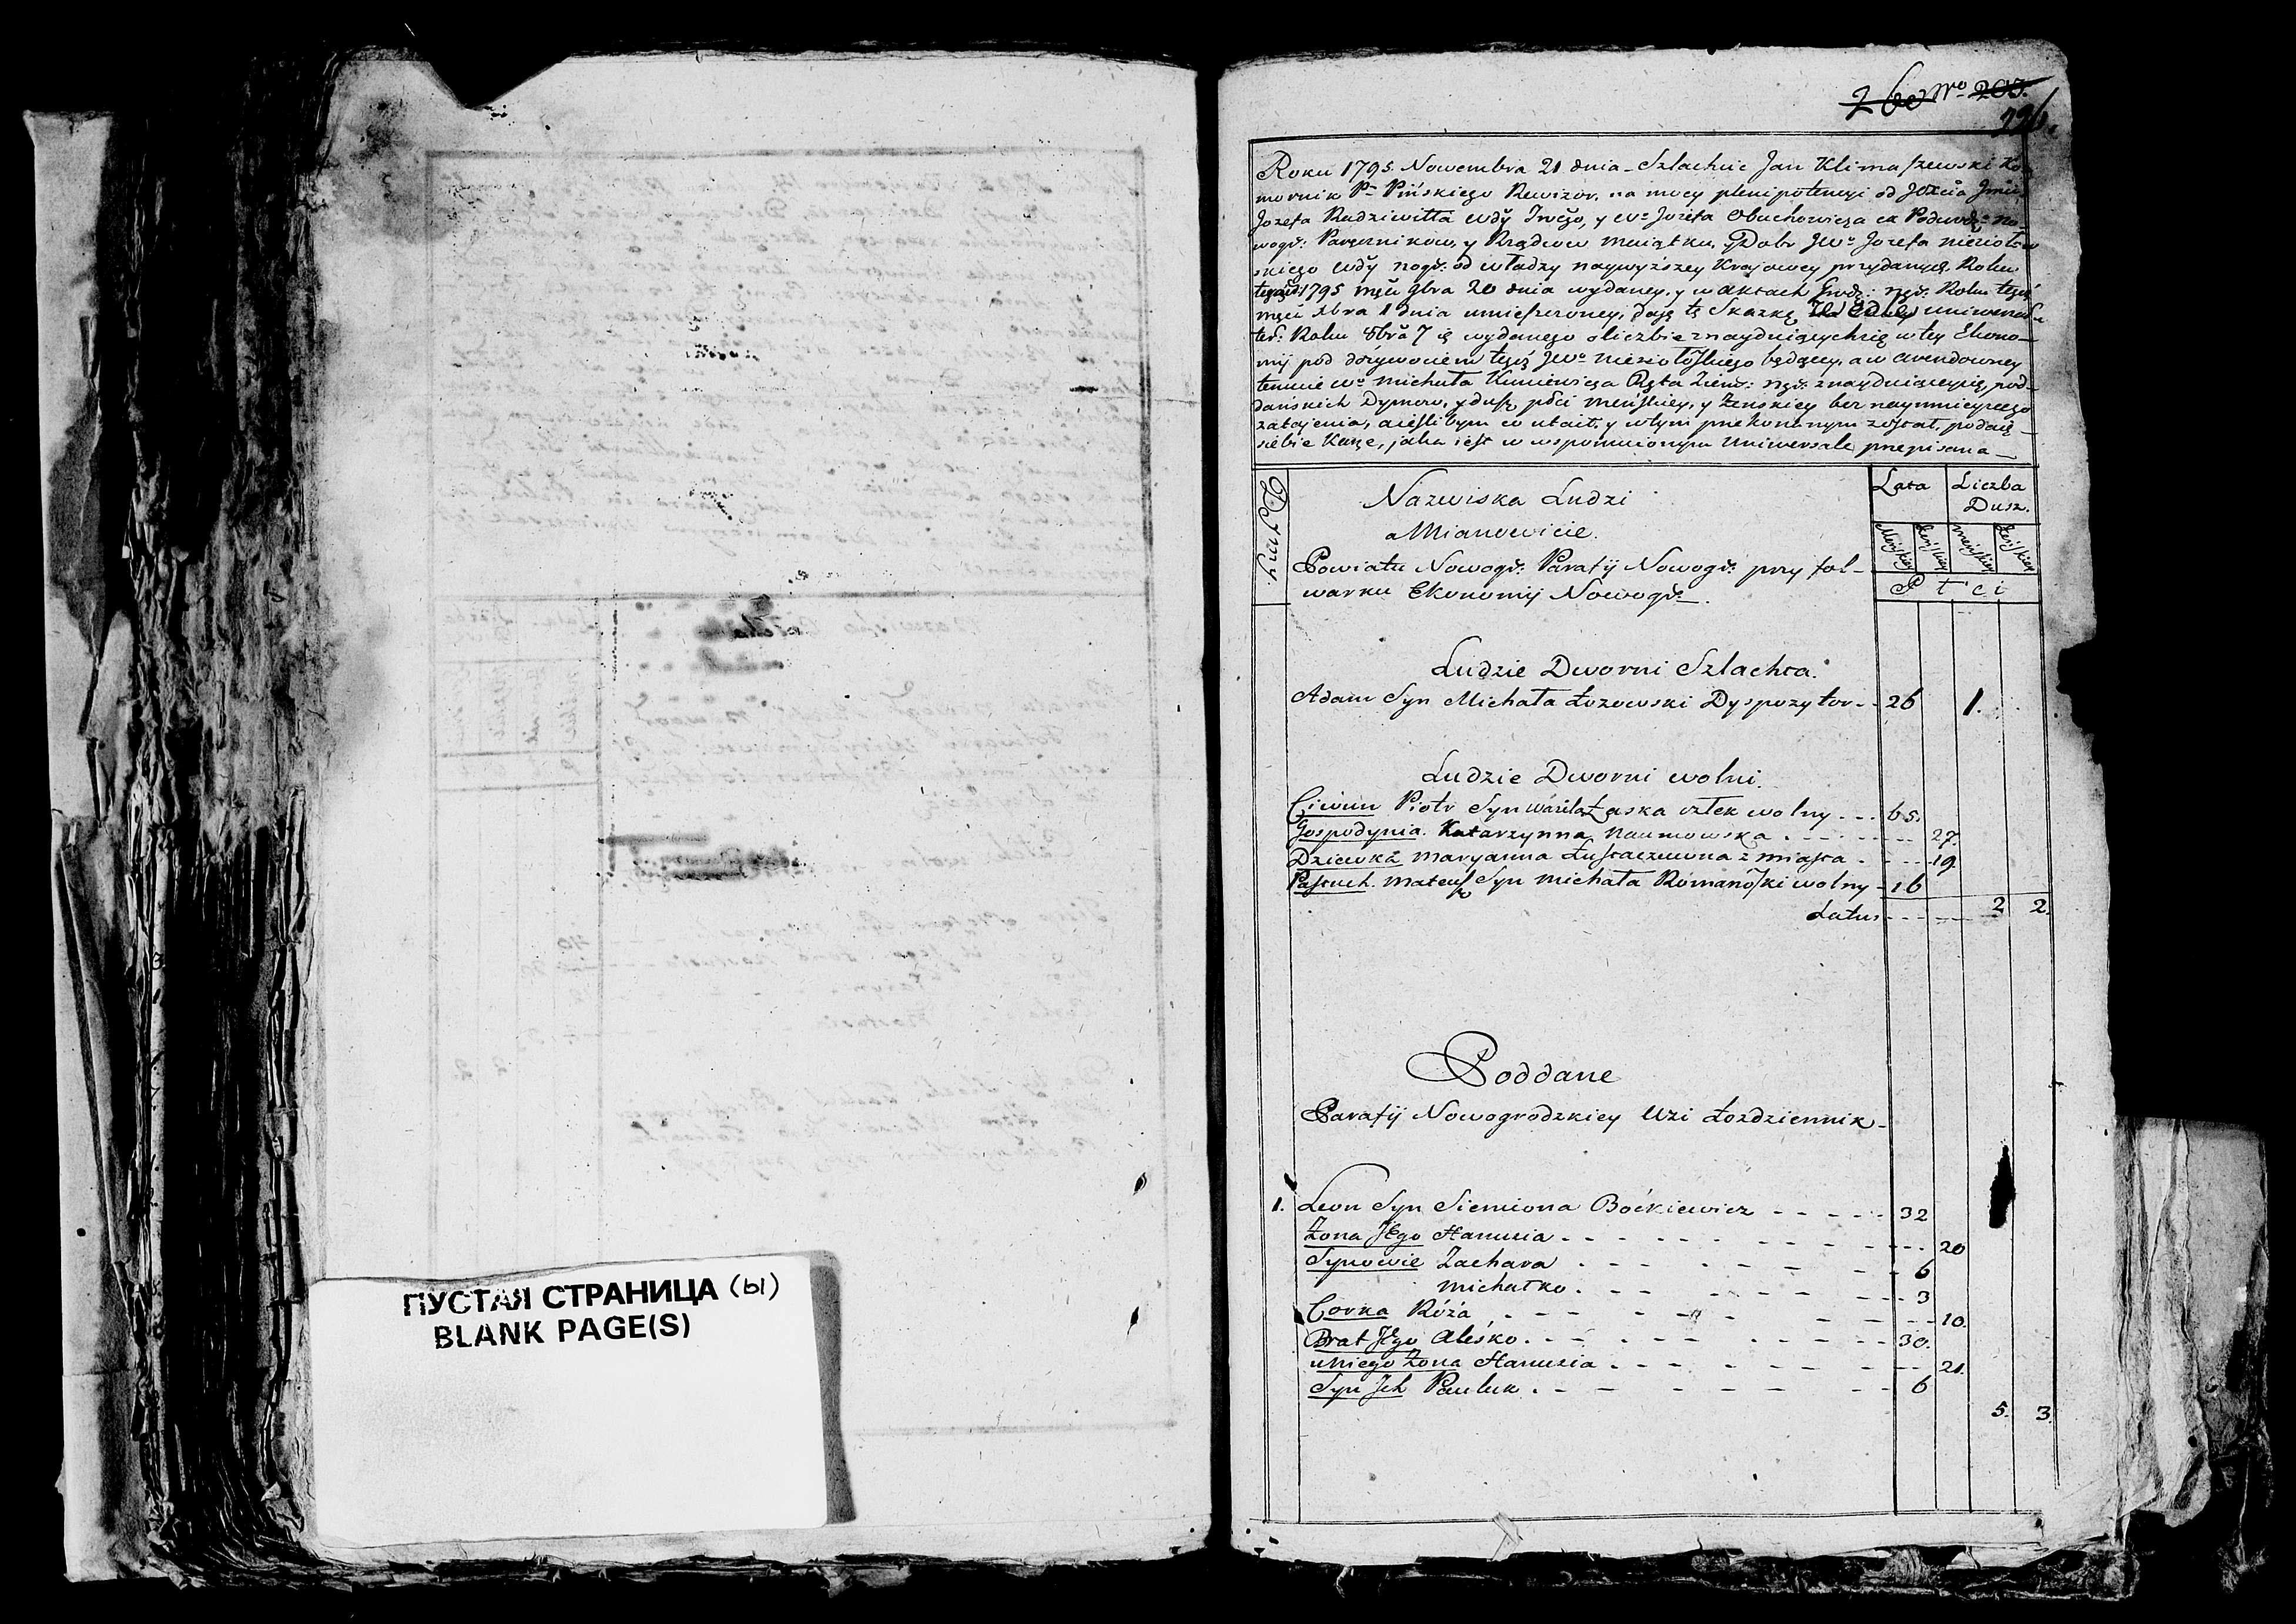 ПУСТАЯ СТРАНИЦА (ы)
BLANK PAGE(S)
260 Nro 203.
226.
Roku 1795. Nowembra 21 dnia Szlachcic Jan Klimaszewski Ko-
mornik Ptu Pińskiego Rewizor, na mocy plenipotencyi od JOXcia Jmci
Jozefa Radziwiłła Wdy Trocgo, y Wo Jozefa Obuchowicza ex Podwdz: No-
wogr: Paręcznikow, y Rządcow maiątku, y Dobr JWo Jozefa Niesiołow-
skiego Wdy nogr: od władzy naywyższey Krajowey przydanych. Roku
1795 mca 9bra 20 dnia wydaney, y w Aktach Grodz: ngr: Roku tegoż
mca Xbra 1 dnia umieszczoney, daję tę Skazkę uniwersału
ter: Roku 8bra 7 wydanego o liczbie znayduiących się w tey Ekono-
mij pod dożywociem tegoż JWo Niesiołowskiego będącey, a w arendowney
tenucie Wo Michała Kuniewicza Rgta Ziems: ngr: znayduiąceysię, pod-
dańskich Dymow, y dusz płci męskiey, y żenskiey bez naymnieyszego
zatajenia, aieśli bym co utaił, y w tym przekonanym został, podaię
siebie Karze, jaka iest w wspomnionym Uniwersale przepisana
Dymy
Nazwiska Ludzi
Mianowicie.
Lata
Liczba Dusz.
Męskiey Żeńskiey Męskiey Żeńskiey
P ł c i
Powiatu Nowogr: Parafij Nowogr: przy fol-
warku Ekonomij Nowogr:
Ludzie Dworni Szlachta.
Adam Syn Michała Łozowski Dyspozytor - 26 1.
Ludzie Dworni wolni.
Ciwun Piotr Syn Wasila Łaska człek wolny - - - 65.
Gospodynia. Katarzynna Naumowska - - - 27.
Dziewka Maryanna Łustaczewna z miasta - - - 19.
Pastuch. Mateusz Syn Michała Romanowski wolny - 16
Latus - - - 2 2.
Poddane
Parafij Nowogrodzkiey Wsi Łozdziennik
1. Leon Syn Siemiona Boćkiewicz - - - 32
Żona Jego Hanusia - - - 20
Synowie Zachara - - - 6
Michałko - - - 3
Corka Róża - - - 10.
Brat Jego Aleśko - - - 30.
u niego Żona Hanusia - - - 21.
Syn Ich Pauluk - - - 6
5. 3.